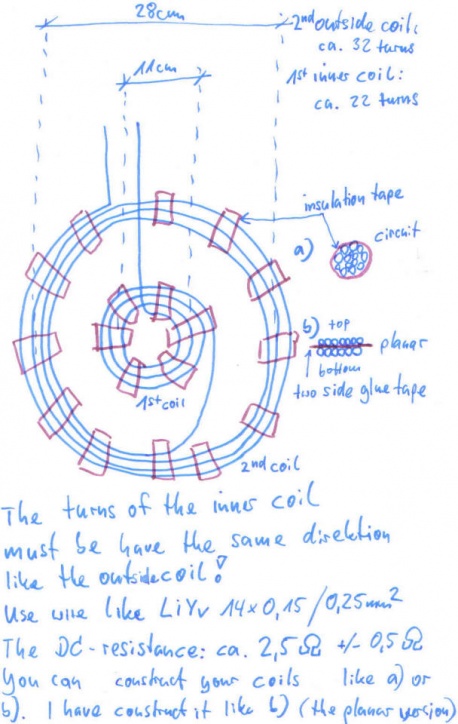 28cm
2nd outside coil:
ca. 32 turns
11cm
1st inner coil:
ca. 22 turns
insulation tape
a)
circuit
b) top
planar
bottom
two side glue tape
1st coil
2nd coil
The turns of the inner coil
must be have the same direktion
like the outsidecoil!
Use wire like LiYv 14x0,15/0,25mm²
The DC-resistance: ca. 2,5Ω +/- 0,5Ω
You can construct your coils like a) or
b). I have construct it like b) (the planar version)